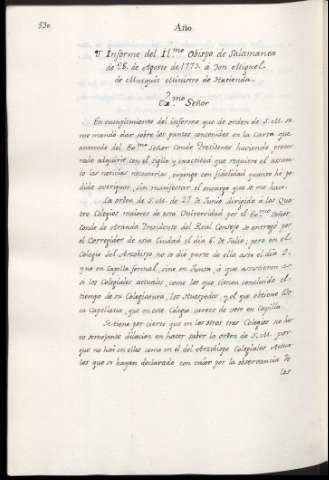 530
Año
¶ Informe del Il.mo Obispo de Salamanca
de 28. de Agosto de 1772. a Don Miguel
de Muzquiz Ministro de Hacienda.
Señor
En cumplimiento del informe que de orden de S.M. se
me manda dar sobre los puntos contenidos en la Carta que
acuerda del Ex.mo Señor Conde Presidente haviendo procu-
rado adquirir con el sigilo y exactitud que requiere el assun-
to las noticias necesarias, expongo con fidelidad quanto hè po-
dido averiguar, sin manifestar el encargo que se me hace.
La orden de S.M. de 27. de Junio dirigida à los Qua-
tro Colegios maiores de esta Universidad por el Ex.mo Señor
Conde de Aranda Presidente del Real Consejo se entregò por
el Corregidor de esta Ciudad el dia 6. de Julio; pero en el
Colegio del Arzobispo no se diò parte de ella asta el dia 8,
y no en Capilla formal, sino en Junta, à que assistieron
los Colegiales actuales, como los que tienen concluido el
tiempo de su Colegiatura, los Huespedes, y el que obtiene
Capellania, que en este Colegio carece de voto en Capilla.
Se tiene por cierto que en los otros tres Colegios no hu-
vo semejante dilacion en hacer saber la orden de S.M. por-
que no hai en ellos como en el del Arzobispo Colegiales Actua-
les que se hayan declarado con calor por la observancia de
las